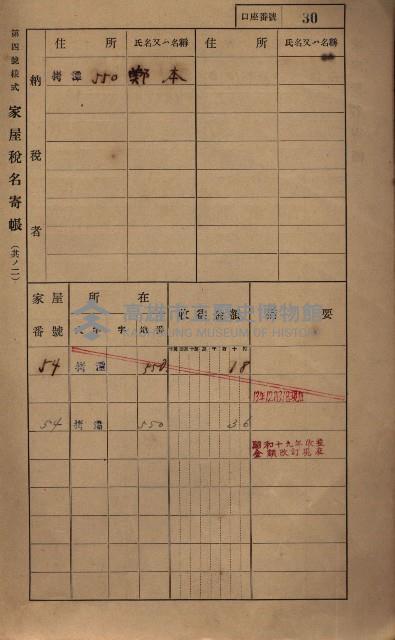 口座番號 30
第四號樣式 家屋稅名寄帳 (其ノ二)
納稅者
住所 氏名又ハ名稱 住所 氏名又ハ名稱
拷潭 550 鄭本
家屋番號 所在 收益金額 摘要
大字 字 地番
54 拷潭 550 18
54 拷潭 550 36
昭和十九年收益
金額改訂
高雄市立歷史博物館
KAOHSIUNG MUSEUM OF HISTORY